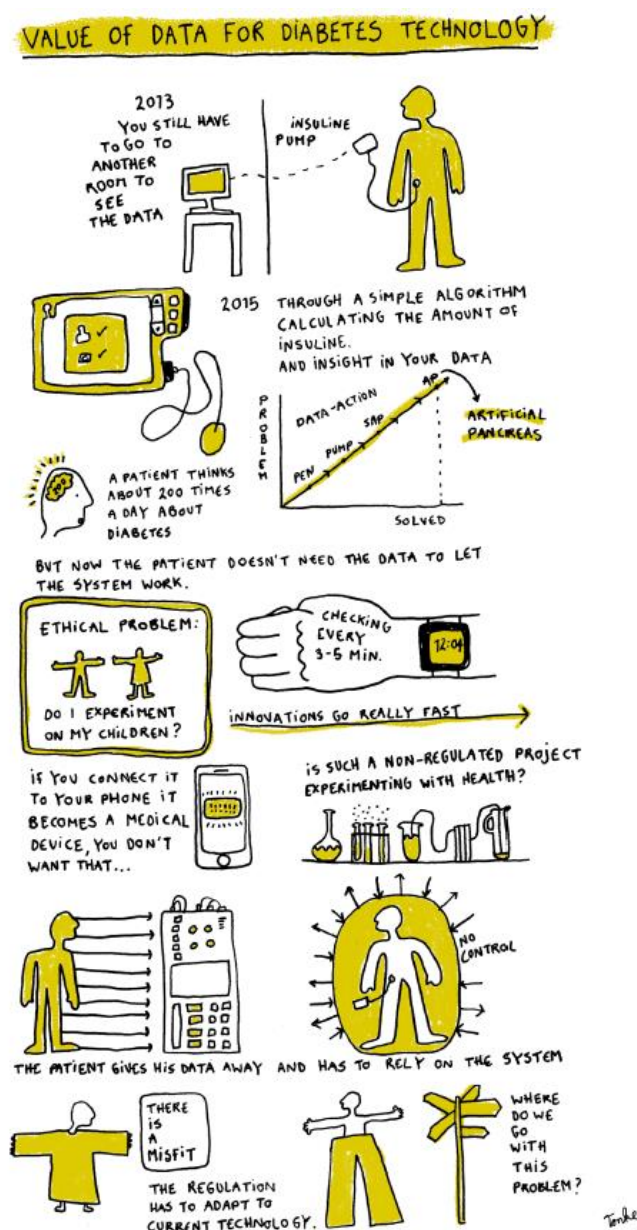 VALUE OF DATA FOR DIABETES TECHNOLOGY
2013
YOU STILL HAVE
TO GO TO
ANOTHER
ROOM TO
SEE
THE DATA
INSULINE
PUMP
2015 THROUGH A SIMPLE ALGORITHM
CALCULATING THE AMOUNT OF
INSULINE.
AND INSIGHT IN YOUR DATA
PROBLEM
DATA-ACTION
PEN
PUMP
SAP
AP
ARTIFICIAL
PANCREAS
SOLVED
A PATIENT THINKS
ABOUT 200 TIMES
A DAY ABOUT
DIABETES
BUT NOW THE PATIENT DOESN'T NEED THE DATA TO LET
THE SYSTEM WORK.
ETHICAL PROBLEM:
DO I EXPERIMENT
ON MY CHILDREN?
CHECKING
EVERY
3-5 MIN.
12:04
INNOVATIONS GO REALLY FAST
IF YOU CONNECT IT
TO YOUR PHONE IT
BECOMES A MEDICAL
DEVICE, YOU DON'T
WANT THAT...
IS SUCH A NON-REGULATED PROJECT
EXPERIMENTING WITH HEALTH?
NO
CONTROL
THE PATIENT GIVES HIS DATA AWAY AND HAS TO RELY ON THE SYSTEM
THERE
IS
A
MISFIT
THE REGULATION
HAS TO ADAPT TO
CURRENT TECHNOLOGY.
WHERE
DO WE
GO
WITH
THIS
PROBLEM?